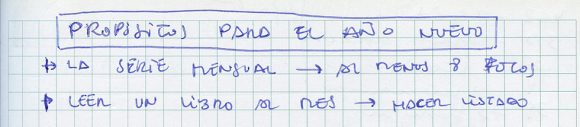 PROPÓSITOS PARA EL AÑO NUEVO
LA SERIE MENSUAL → AL MENOS 8 FOTOS
LEER UN LIBRO AL MES → HACER LISTADO